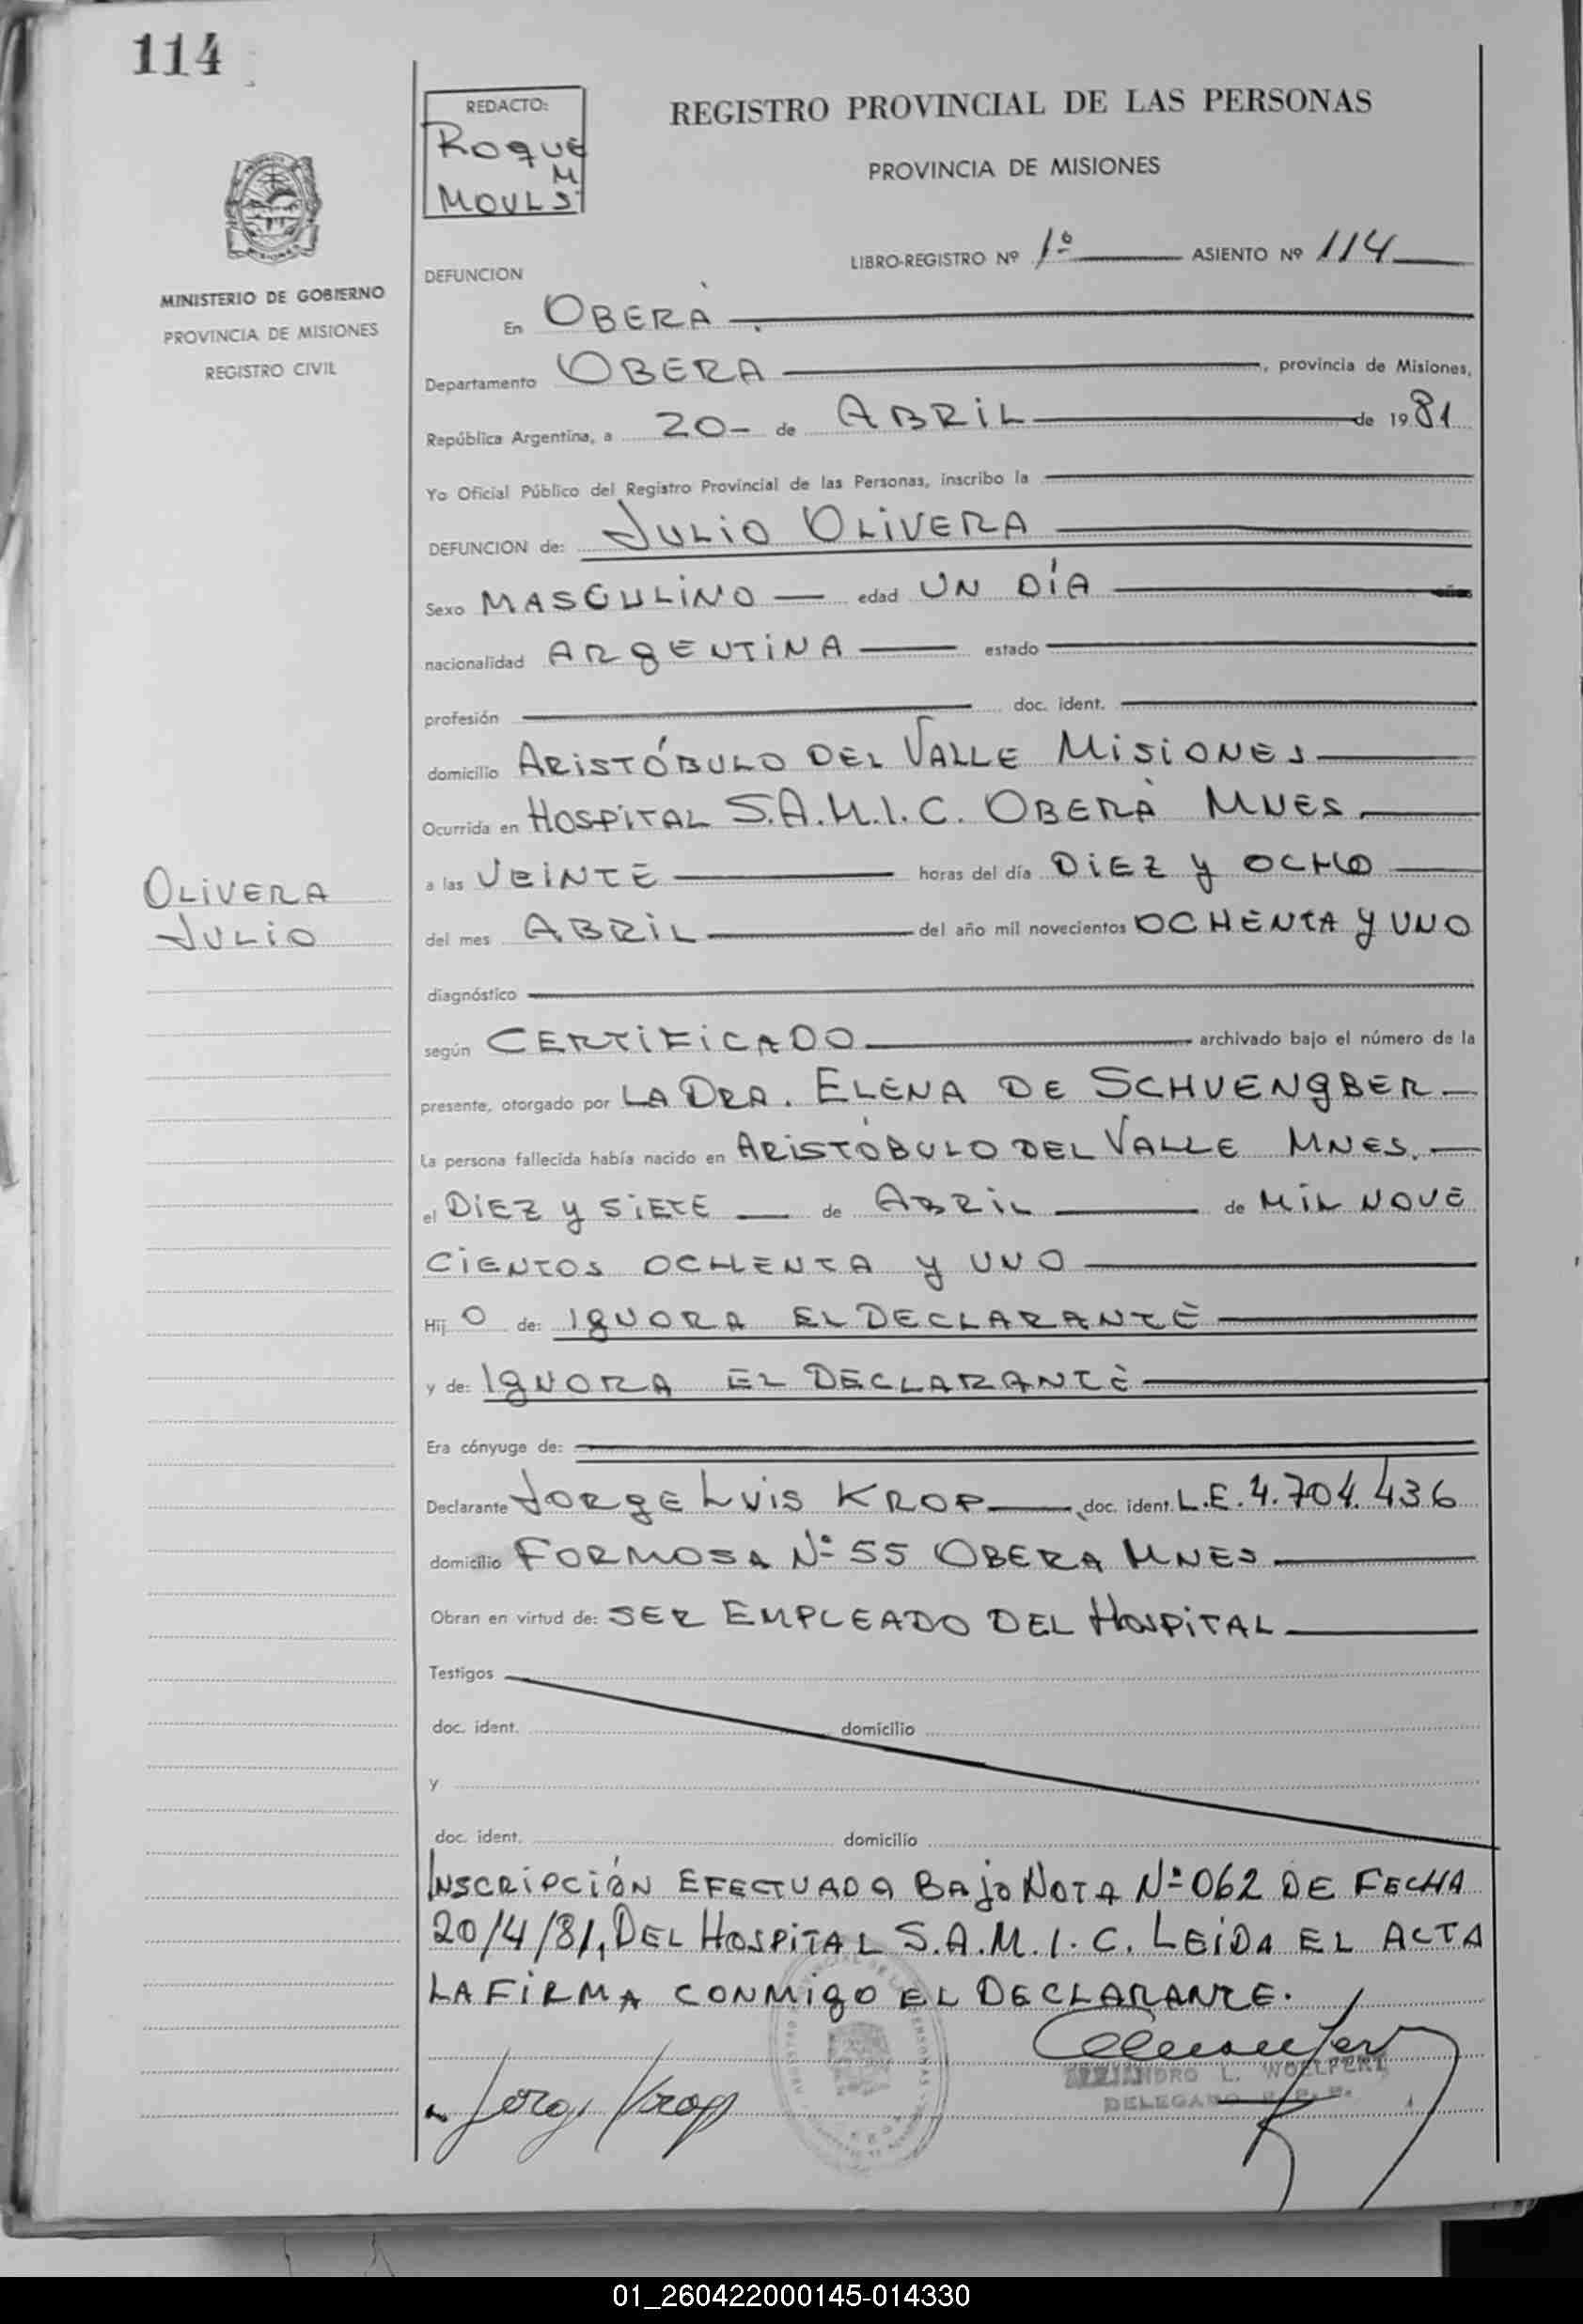 114
REDACTO:
ROQUE
M
MOULS
REGISTRO PROVINCIAL DE LAS PERSONAS
PROVINCIA DE MISIONES
MINISTERIO DE GOBIERNO
PROVINCIA DE MISIONES
REGISTRO CIVIL
LIBRO-REGISTRO Nº 1º ASIENTO Nº 114
DEFUNCION
En OBERÁ
Departamento OBERÁ, provincia de Misiones,
República Argentina, a 20- de ABRIL de 1981
Yo Oficial Público del Registro Provincial de las Personas, inscribo la
DEFUNCION de: JULIO OLIVERA
Sexo MASCULINO edad UN DÍA
nacionalidad ARGENTINA estado
profesión doc. ident.
domicilio ARISTÓBULO DEL VALLE MISIONES
Ocurrida en HOSPITAL S.A.M.I.C. OBERÁ MNES
a las VEINTE horas del día DIEZ Y OCHO
OLIVERA
JULIO
del mes ABRIL del año mil novecientos OCHENTA Y UNO
diagnóstico
según CERTIFICADO archivado bajo el número de la
presente, otorgado por LA DRA. ELENA DE SCHUENGBER
La persona fallecida había nacido en ARISTÓBULO DEL VALLE MNES.
el DIEZ Y SIETE de ABRIL de MIL NOVE
CIENTOS OCHENTA Y UNO
Hij O de: IGNORA EL DECLARANTE
y de: IGNORA EL DECLARANTE
Era cónyuge de:
Declarante JORGE LUIS KROP doc. ident. L.E. 4.704.436
domicilio FORMOSA Nº 55 OBERA MNES
Obran en virtud de: SER EMPLEADO DEL HOSPITAL
Testigos
doc. ident. domicilio
y
doc. ident. domicilio
INSCRIPCIÓN EFECTUADA BAJO NOTA Nº 062 DE FECHA
20/4/81, DEL HOSPITAL S.A.M.I.C. LEIDA EL ACTA
LA FIRMA CONMIGO EL DECLARANTE.
Jorge Krop
L. WOELFERT
DELEGADO
01_260422000145-014330